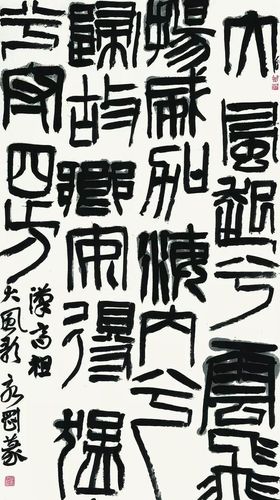 大風起兮雲飛
揚威加海內兮
歸故鄉安得猛
士兮守四方
漢高祖
大風歌 永剛篆